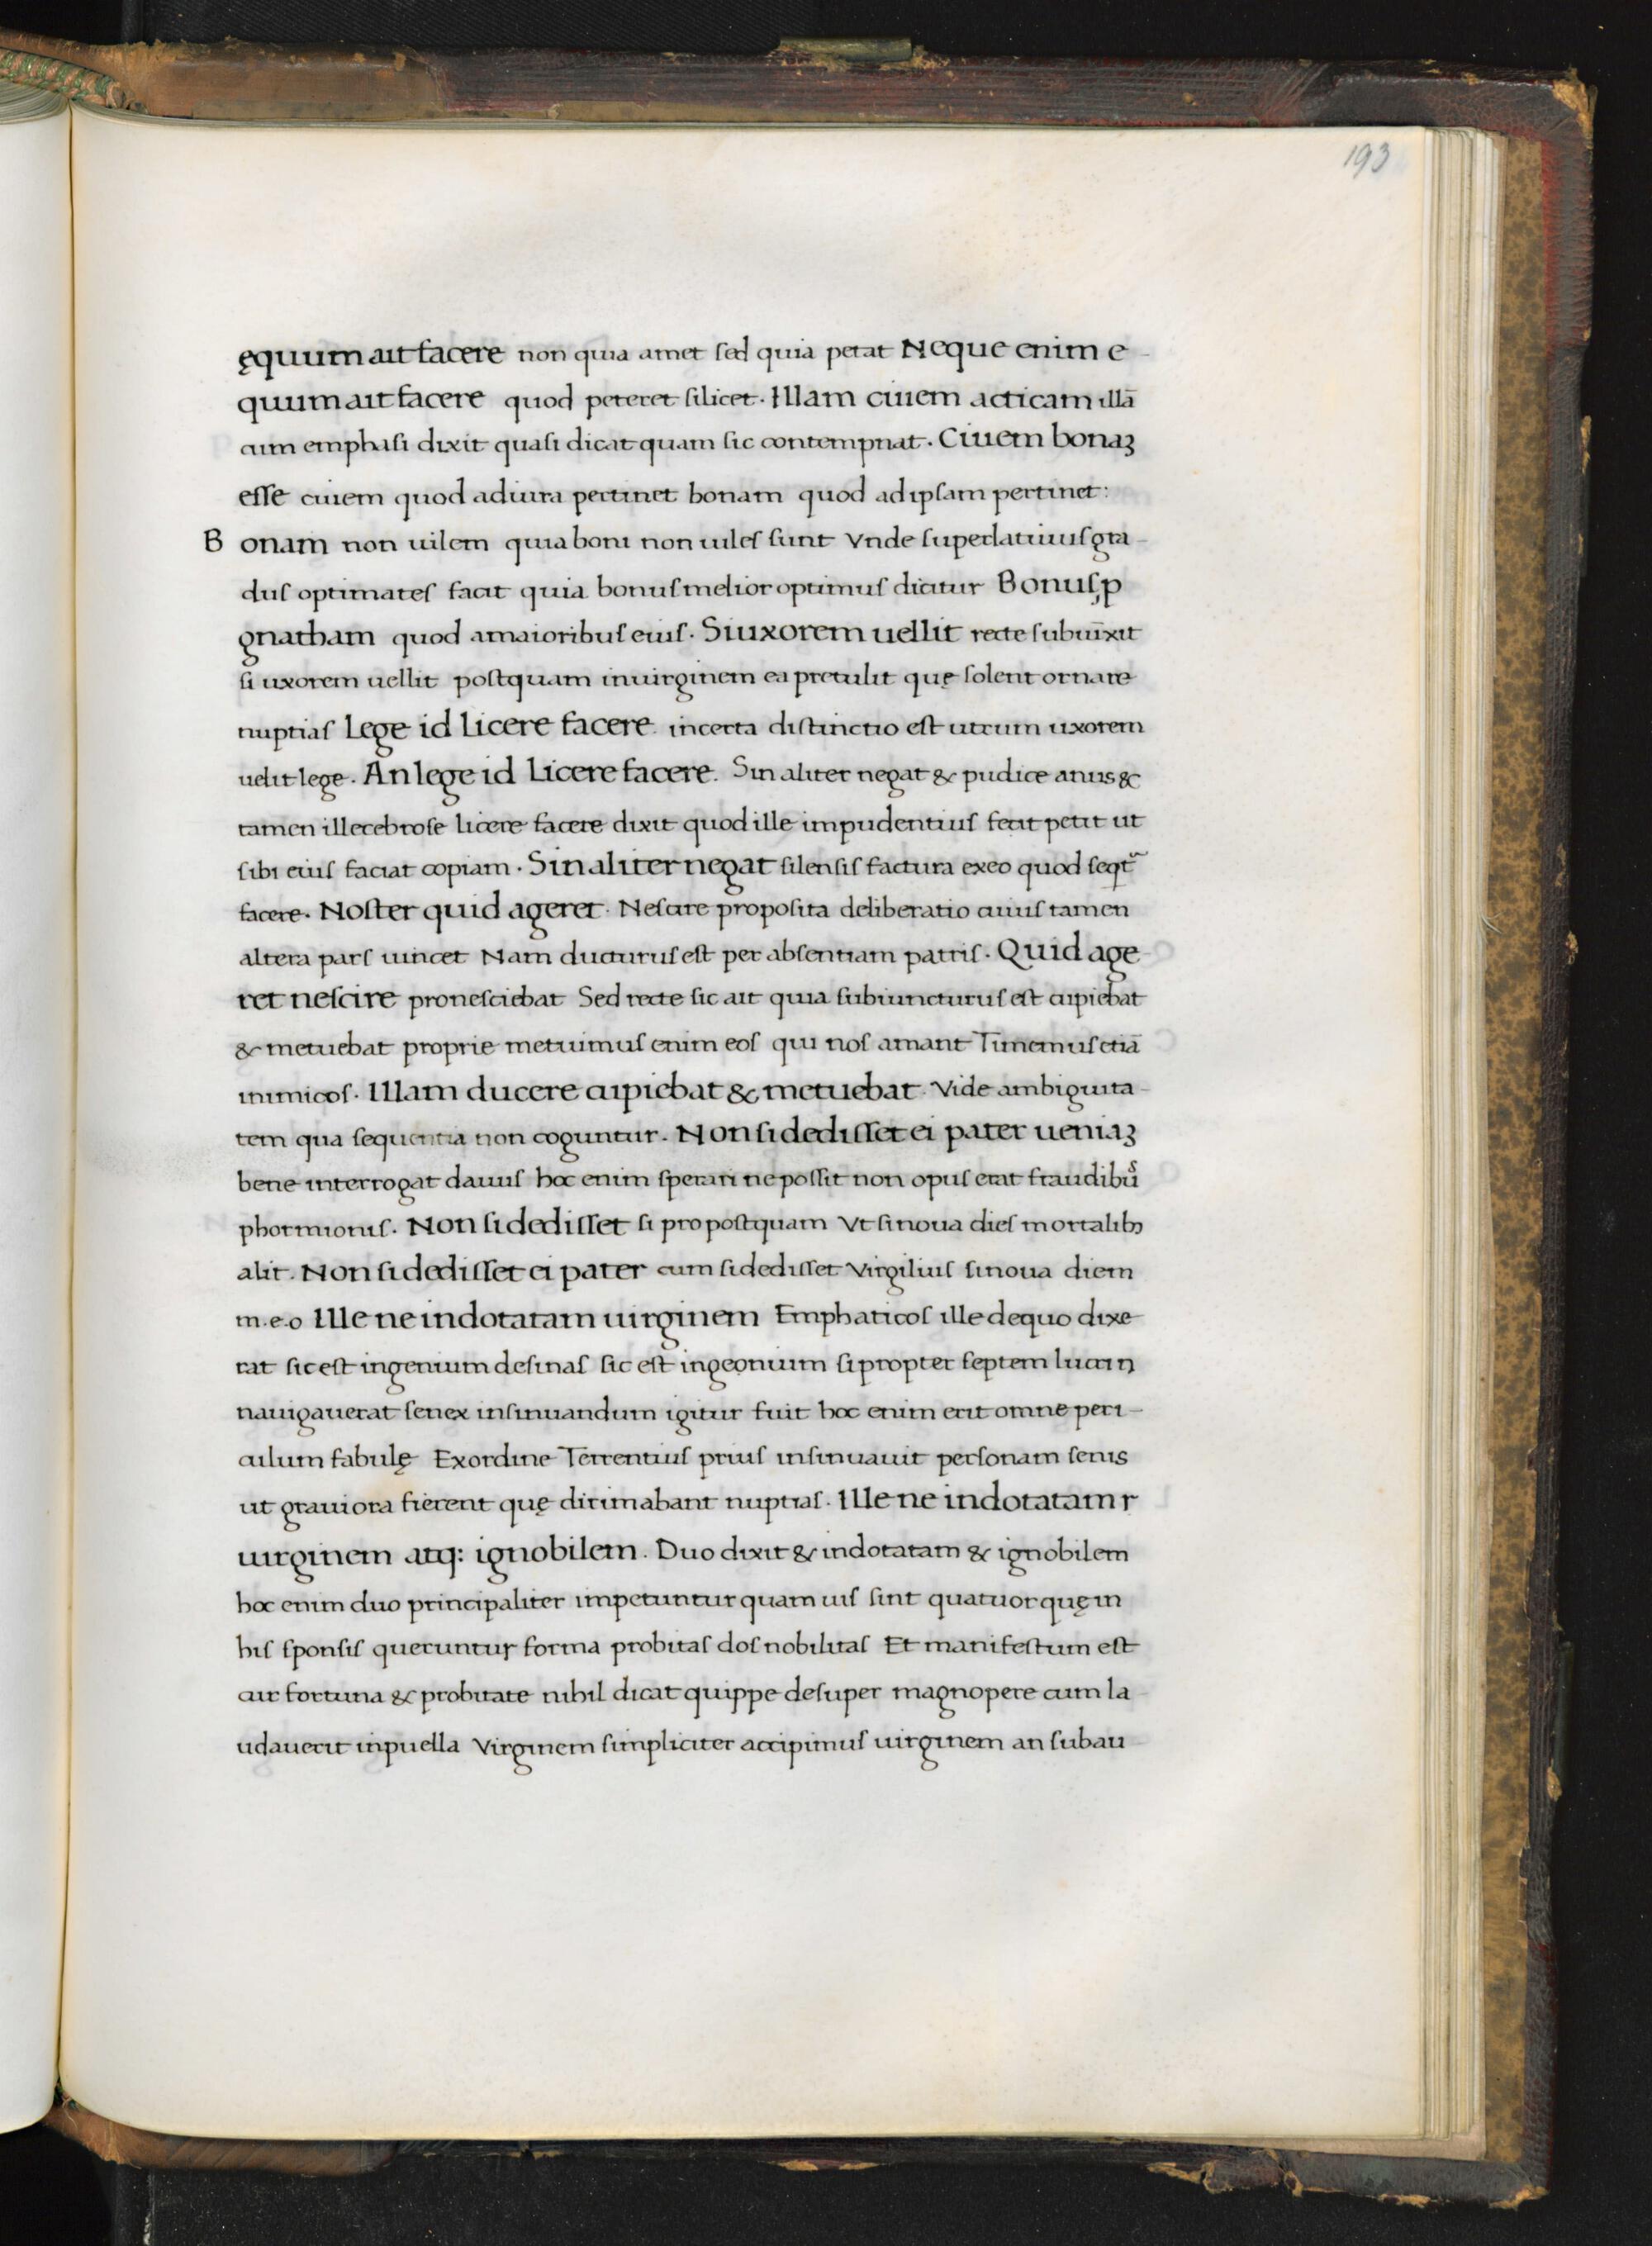 193
ęquum ait facere non quia amet sed quia petat Neque enim e
quum ait facere quod peteret silicet. Illam ciuem acticam illā
cum emphasi dixit quasi dicat quam sic contempnat. Ciuem bonaꝫ
esse ciuem quod adiura pertinet bonam quod ad ipsam pertinet:
Bonam non uilem quia boni non uiles sunt Vnde superlatiuus gra
dus optimates facit quia bonus melior optimus dicitur Bonus, p
gnatham quod amaioribus eius. Si uxorem uellit recte subuīxit
si uxorem uellit postquam inuirginem ea pretulit quę solent ornare
nuptias Lege id licere facere. incerta distinctio est utrum uxorem
uelit lege. An lege id Licere facere. Sin aliter negat & pudice anus &
tamen illecebrose licere facere dixit quod ille impudentius fecit petit ut
sibi eius faciat copiam. Sin aliter negat silensis factura exeo quod seqt̃
facere. Noster quid ageret. Nescire proposita deliberatio cuius tamen
altera pars uincet Nam ducturus est per absentiam patris. Quid age
ret nescire pronesciebat Sed recte sic ait quia subiuncturus est cupiebat
& metuebat proprie metuimus enim eos qui nos amant Timemus etiā
inimicos. Illam ducere cupiebat & metuebat. Vide ambiguita
tem qua sequentia non coguntur. Non si dedisset ei pater ueniaꝫ
bene interrogat dauus hoc enim sperari ne possit non opus erat fraudibus
phormionis. Non si dedisset si pro postquam Vt si noua dies mortalibꝫ
alit. Non si dedisset ei pater cum si dedisset Virgilius si noua diem
m.e.o Ille ne indotatam uirginem Emphaticos ille dequo dixe
rat sic est ingenium desinas sic est ingeonium si propter septem lucrin
nauigauerat senex insinuandum igitur fuit hoc enim erit omne peri
culum fabulę Exordine Terrentius prius insinuauit personam senis
ut grauiora fierent quę dirimabant nuptias. Ille ne indotatam r
uirginem atq: ignobilem. Duo dixit & indotatam & ignobilem
hoc enim duo principaliter impetuntur quam uis sint quatuor quę in
his sponsis queruntur forma probitas dos nobilitas Et manifestum est
cur fortuna & probitate nihil dicat quippe desuper magnopere cum la
udauerit inpuella Virginem simpliciter accipimus uirginem an subau